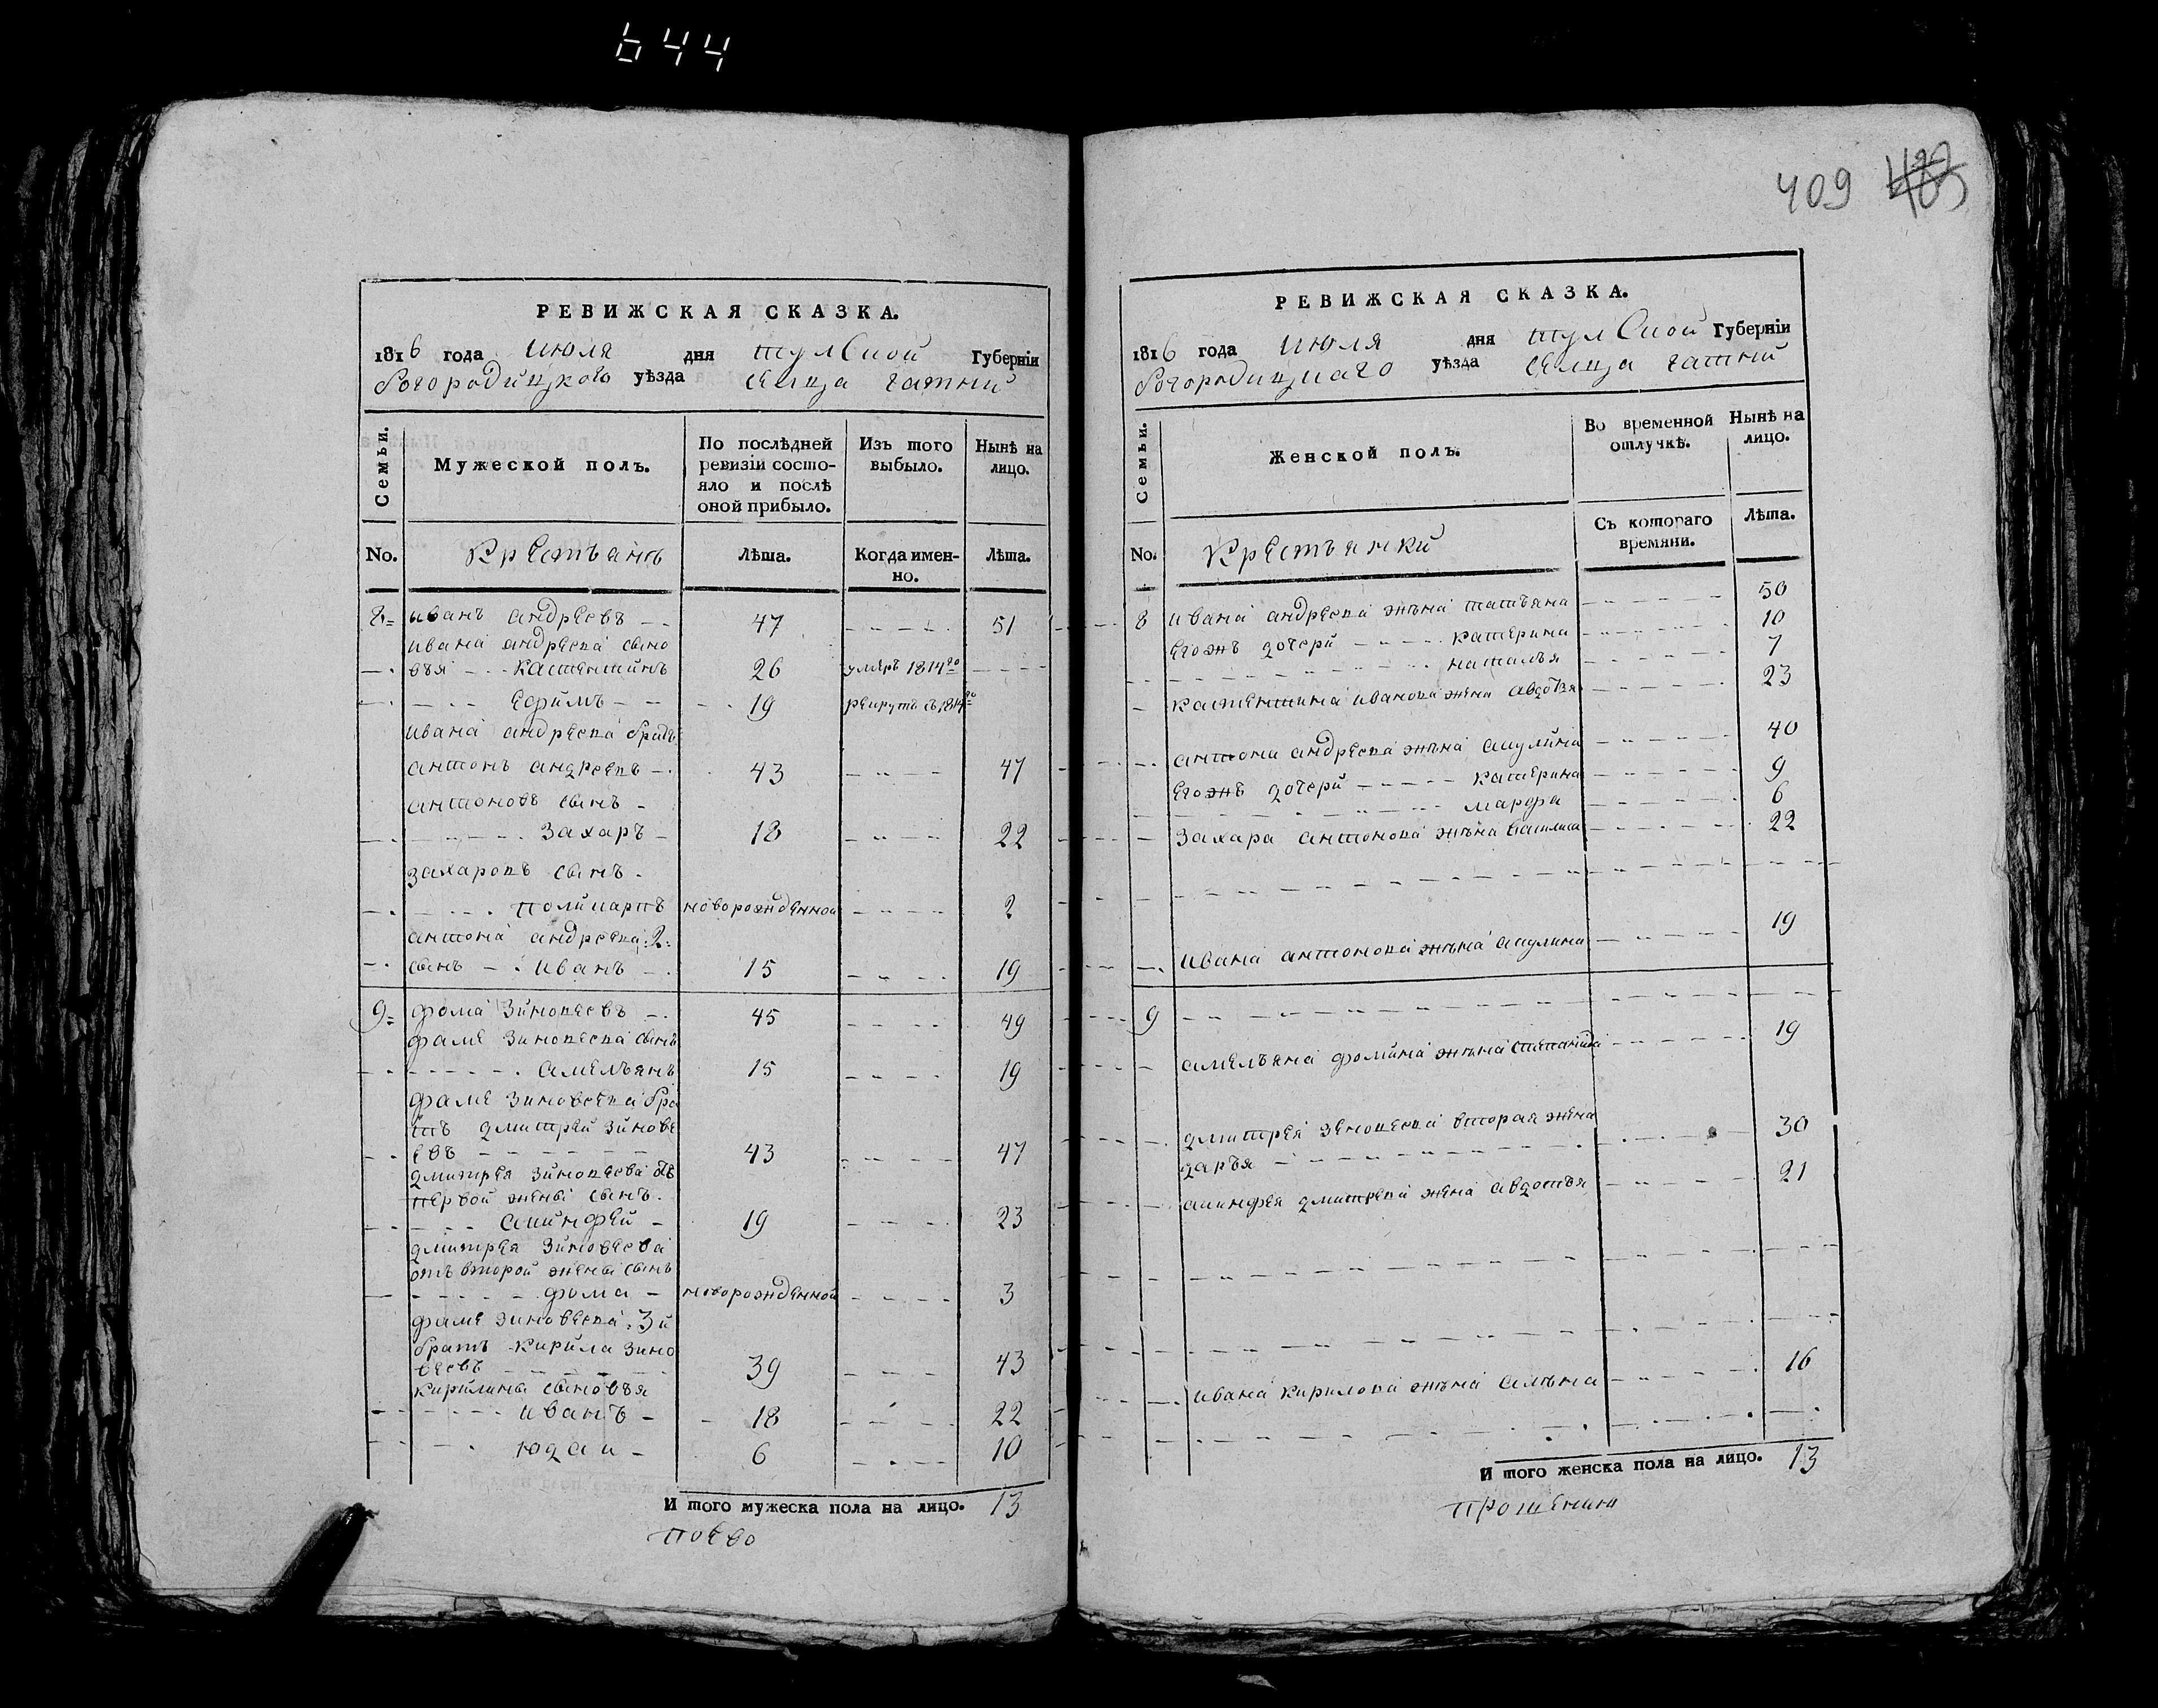 644
РЕВИЖСКАЯ СКАЗКА.
1816 года июля дня тулской Губернїи
богородицкого уѣзда селца гатный
Семьи.
Мужеской полъ.
По послѣдней ревизїи состояло и послѣ оной прибыло.
Изъ того выбыло.
Нынѣ на лицо.
No. Крестьянъ Лѣта. Когда именно. Лѣта.
8 иванъ андреевъ 47 51
ивана андреева сыно
вья кастентинъ 26 умеръ 1814го
ефимъ 19 рекрутъ съ 1814го
ивана андреева братъ
антонъ андреевъ 43 47
антоновъ сынъ
захаръ 18 22
захаровъ сынъ
поликарпъ новорожденной 2
антона андреева 2
сынъ иванъ 15 19
9 фома зиновеевъ 45 49
фаме зиновеева сынъ
амельянъ 15 19
фаме зиновеева бра
тъ дмитрей зинове
евъ 43 47
дмитрея зиновеева
первой жены сынъ
акинфей 19 23
дмитрея зиновеева
отъ второй жены сынъ
фома новорожденной 3
фаме зиновеева 3й
братъ кирила зино
веевъ 39 43
кирилины сыновья
иванъ 18 22
юдаи 6 10
И того мужеска пола на лицо. 13
поево
409
РЕВИЖСКАЯ СКАЗКА.
1816 года июля дня тулской Губернїи
богородицкаго уѣзда селца гатный
Семьи.
Женской полъ.
Во временной отлучкѣ.
Нынѣ на лицо.
No. Крестьянки Съ котораго времяни. Лѣта.
8 ивана андреева жена татьяна 50
егожъ дочери катерина 10
наталья 7
кастентина иванова жена авдотья 23
антона андреева жена акулина 40
егожъ дочери катерина 9
марфа 6
захара антонова жена василиса 22
ивана антонова жена акулина 19
9
амельяна фомина жена степанида 19
дмитрея зеновеева вторая жена
дарья 30
акинфея дмитрева жена авдотья 21
ивана кирилова жена алена 16
И того женска пола на лицо. 13
прошению